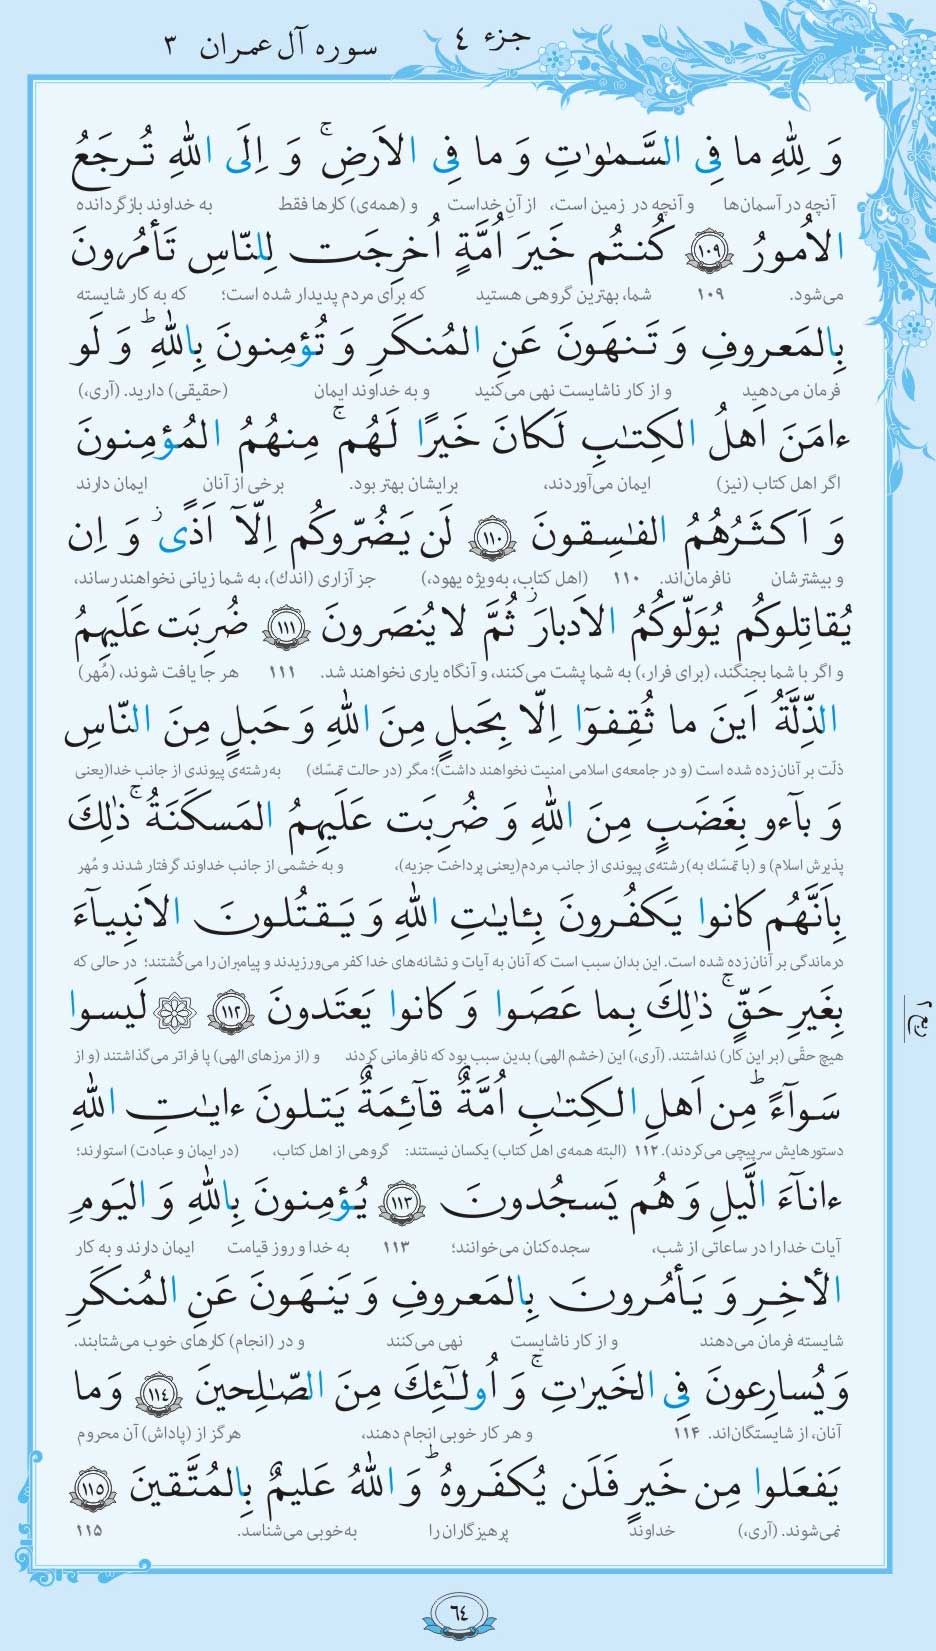 جزء ٤
سوره آل عمران ٣
وَ لِلّٰهِ ما فِی السَّمٰوٰتِ وَ ما فِی الاَرضِ ۚ وَ اِلَی اللهِ تُرجَعُ
آنچه در آسمان‌ها و آنچه در زمین است، از آنِ خداست و (همه‌ی) کارها فقط به خداوند بازگردانده
الاُمورُ ﴿١٠٩﴾ کُنتُم خَیرَ اُمَّةٍ اُخرِجَت لِلنّاسِ تَأمُرونَ
می‌شود. ۱۰۹ شما، بهترین گروهی هستید که برای مردم پدیدار شده است؛ که به کار شایسته
بِالمَعروفِ وَ تَنهَونَ عَنِ المُنکَرِ وَ تُؤمِنونَ بِاللهِ ؕ وَ لَو
فرمان می‌دهید و از کار ناشایست نهی می‌کنید و به خداوند ایمان (حقیقی) دارید. (آری،)
ءامَنَ اَهلُ الکِتٰبِ لَکانَ خَیرًا لَهُم ۚ مِنهُمُ المُؤمِنونَ
اگر اهل کتاب (نیز) ایمان می‌آوردند، برایشان بهتر بود. برخی از آنان ایمان دارند
وَ اَکثَرُهُمُ الفٰسِقونَ ﴿١١٠﴾ لَن یَضُرّوکُم اِلّآ اَذًی ۖ وَ اِن
و بیشترشان نافرمان‌اند. ۱۱۰ (اهل کتاب، به‌ویژه یهود،) جز آزاری (اندك)، به شما زیانی نخواهند رساند،
یُقاتِلوکُم یُوَلّوکُمُ الاَدبارَ ثُمَّ لا یُنصَرونَ ﴿١١١﴾ ضُرِبَت عَلَیهِمُ
و اگر با شما بجنگند، (برای فرار،) به شما پشت می‌کنند، و آنگاه یاری نخواهند شد. ۱۱۱ هر جا یافت شوند، (مُهر)
الذِّلَّةُ اَینَ ما ثُقِفوٓا اِلّا بِحَبلٍ مِنَ اللهِ وَ حَبلٍ مِنَ النّاسِ
ذلّت بر آنان زده شده است (و در جامعه‌ی اسلامی امنیت نخواهند داشت)؛ مگر (در حالت تمسّك) به رشته‌ی پیوندی از جانب خدا(یعنی
وَ بآءو بِغَضَبٍ مِنَ اللهِ وَ ضُرِبَت عَلَیهِمُ المَسکَنَةُ ۚ ذٰلِكَ
پذیرش اسلام) و (با تمسّك به) رشته‌ی پیوندی از جانب مردم(یعنی پرداخت جزیه)، و به خشمی از جانب خداوند گرفتار شدند و مُهر
بِاَنَّهُم کانوا یَکفُرونَ بِـٔایٰتِ اللهِ وَ یَقتُلونَ الاَنبِیآءَ
درماندگی بر آنان زده شده است. این بدان سبب است که آنان به آیات و نشانه‌های خدا کفر می‌ورزیدند و پیامبران را می‌کُشتند؛ در حالی که
بِغَیرِ حَقٍّ ۚ ذٰلِكَ بِما عَصَوا وَ کانوا یَعتَدونَ ﴿١١٢﴾ لَیسوا
هیچ حقّی (بر این کار) نداشتند. (آری،) این (خشم الهی) بدین سبب بود که نافرمانی کردند و (از مرزهای الهی) پا فراتر می‌گذاشتند (و از
سَوآءً ؕ مِن اَهلِ الکِتٰبِ اُمَّةٌ قآئِمَةٌ یَتلونَ ءایٰتِ اللهِ
دستورهایش سرپیچی می‌کردند). ۱۱۲ (البته همه‌ی اهل کتاب) یکسان نیستند: گروهی از اهل کتاب، (در ایمان و عبادت) استوارند؛
ءانآءَ الَّیلِ وَ هُم یَسجُدونَ ﴿١١٣﴾ یُؤمِنونَ بِاللهِ وَ الیَومِ
آیات خدا را در ساعاتی از شب، سجده‌کنان می‌خوانند؛ ۱۱۳ به خدا و روز قیامت ایمان دارند و به کار
الأٰخِرِ وَ یَأمُرونَ بِالمَعروفِ وَ یَنهَونَ عَنِ المُنکَرِ
شایسته فرمان می‌دهند و از کار ناشایست نهی می‌کنند و در (انجام) کارهای خوب می‌شتابند.
وَ یُسارِعونَ فِی الخَیرٰتِ ۚ وَ اُولٰٓئِكَ مِنَ الصّٰلِحینَ ﴿١١٤﴾ وَ ما
آنان، از شایستگان‌اند. ۱۱۴ و هر کار خوبی انجام دهند، هرگز از (پاداش) آن محروم
یَفعَلوا مِن خَیرٍ فَلَن یُکفَروهُ ؕ وَ اللهُ عَلیمٌ بِالمُتَّقینَ ﴿١١٥﴾
نمی‌شوند. (آری،) خداوند پرهیزگاران را به‌خوبی می‌شناسد. ۱۱۵
٦٤